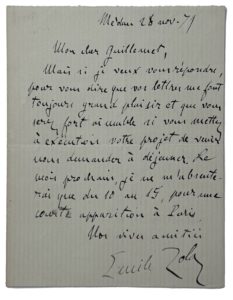 Médan 28 nov. 79
Mon cher Guillemet,
Mais si je veux vous répondre,
pour vous dire que vos lettres me font
toujours grand plaisir et que vous
serez fort aimable si vous mettez
à exécution votre projet de venir
nous demander à déjeuner. Le
mois prochain je ne m'absente-
rai que du 10 au 15, pour une
courte apparition à Paris
Nos vives amitiés
Emile Zola